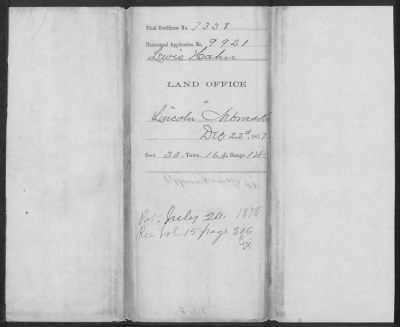 Final Certificate No. 7338
Homestead Application No. 9921
Lewis Hahn
LAND OFFICE
Lincoln Nebraska
Dec 22d, 187
Sect. 30, Town. 16, Range 14
Pat. July 20. 1878
Rec Vol 15 page 306